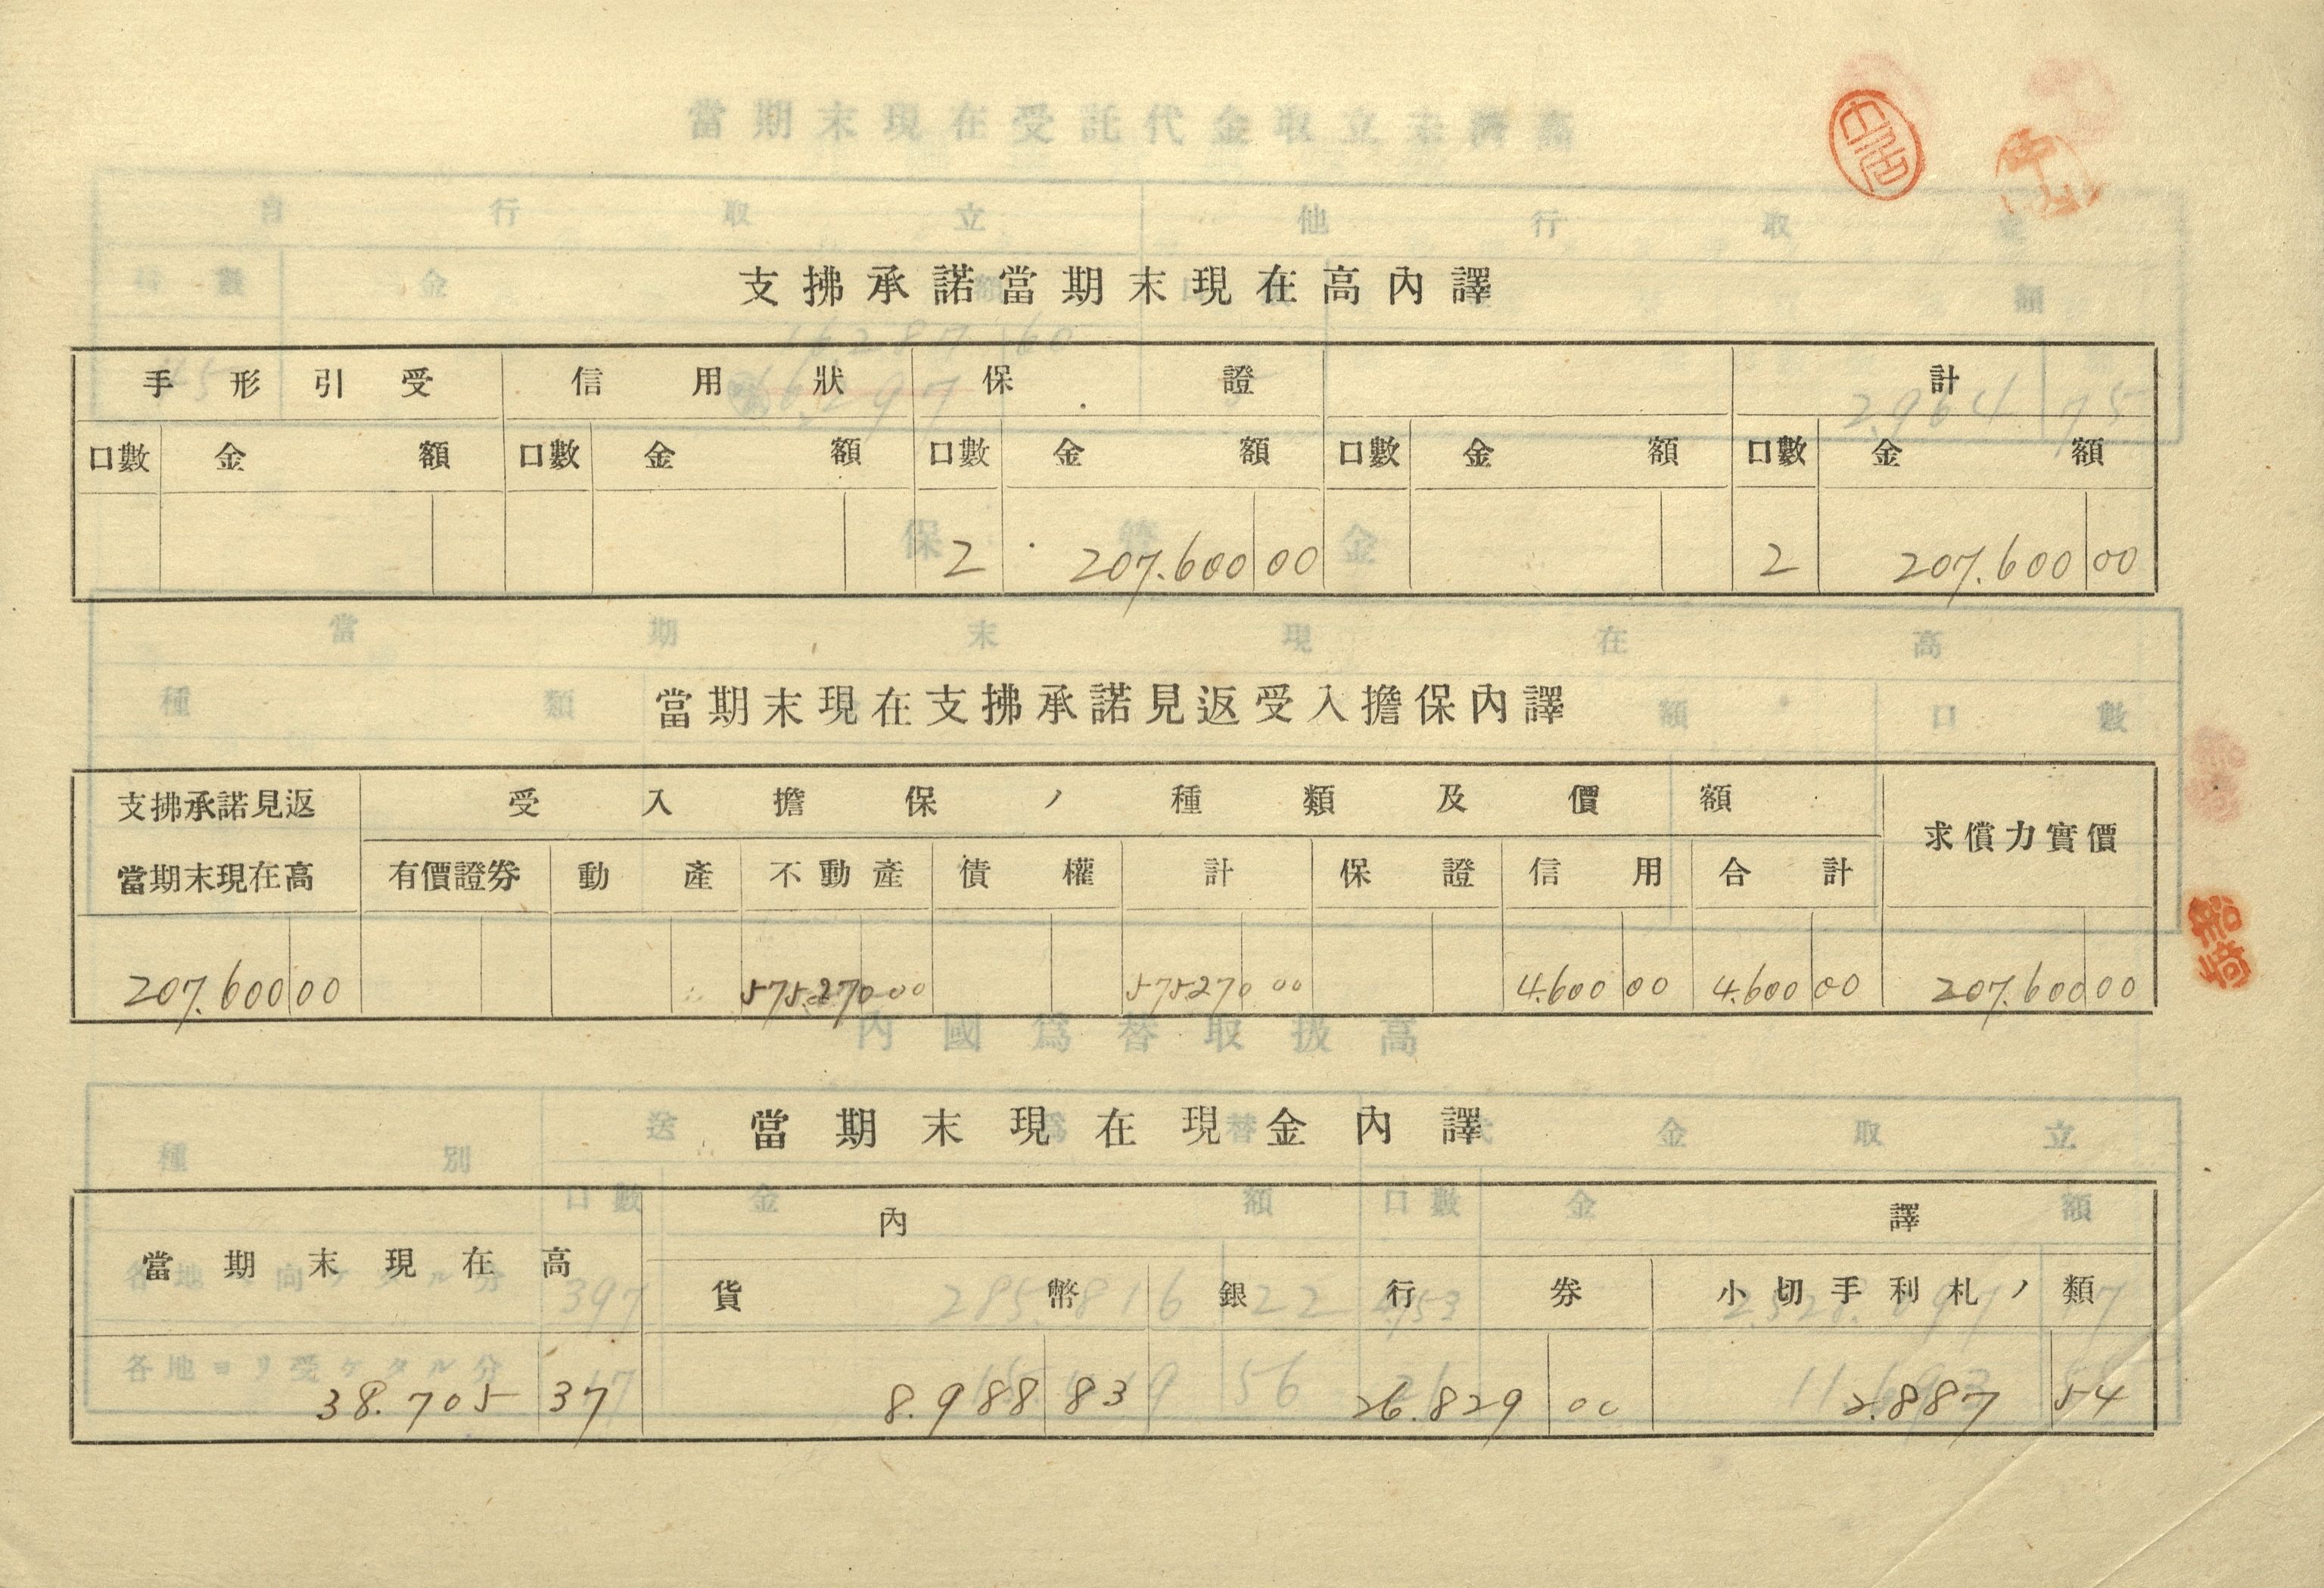 支拂承諾當期末現在高內譯
手形引受 信用狀 保證 計
口數 金額 口數 金額 口數 金額 口數 金額 口數 金額
2 207.600 00 2 207.600 00
當期末現在支拂承諾見返受入擔保內譯
支拂承諾見返 受入擔保ノ種類及價額 求償力實價
當期末現在高 有價證券 動產 不動產 債權 計 保證 信用 合計
207.600 00 575.270 00 575270 00 4.600 00 4.600 00 207.600 00
當期末現在現金內譯
當期末現在高 內譯
貨幣 銀行券 小切手利札ノ類
38.705 37 8.988 83 26.829 00 2.887 54